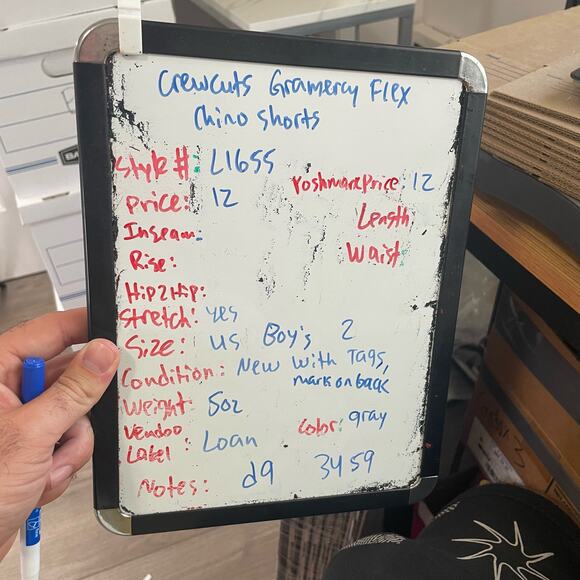 Crewcuts Gramercy Flex
Chino Shorts
Style #: L1655
Poshmark Price: 12
Price: 12
Length
Inseam:
Waist:
Rise:
Hip2Hip:
Stretch: yes
Size: US Boy's 2
Condition: New With Tags,
mark on back
Weight: 5oz
Color: gray
Vendoo
Label: Loan
Notes: d9 3459